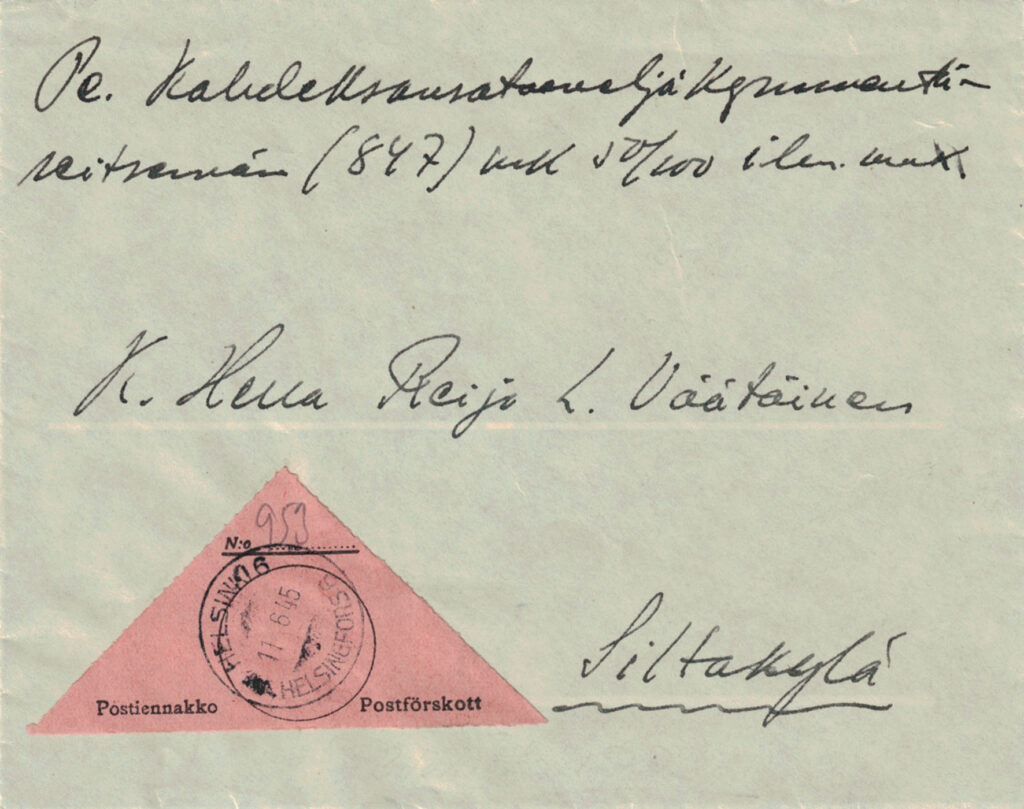 Pe. Kahdeksansataaneljäkymmentä-
seitsemän (847) mk 50/100 ilm. mak.
K. Herra Reijo L. Väätäinen
953
N:o
HELSINKI 6
11. 6 45
HELSINGFORS 6
Postiennakko Postförskott
Siltakylä